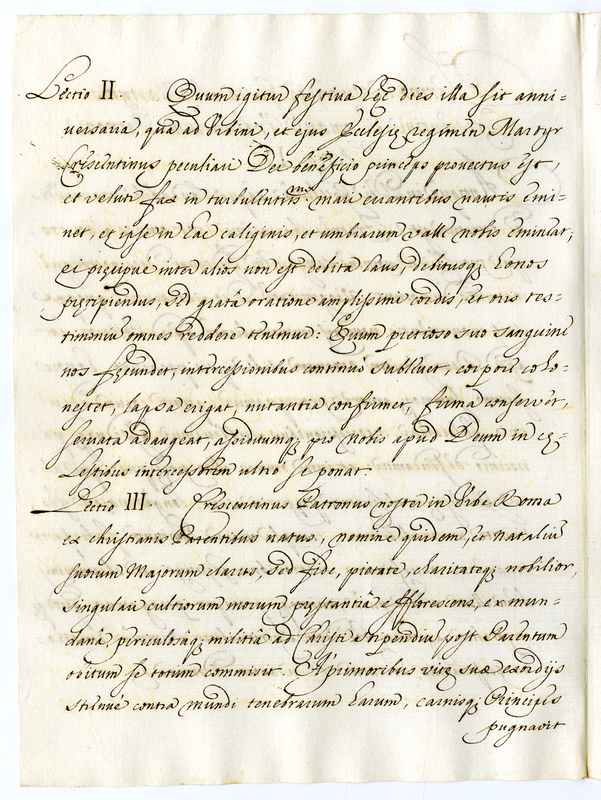 Lectio II. Quum igitur festiva hęc dies illa sit anni=
versaria, quâ ad Urbini, et ejus Ecclesię regimen Martyr
Crescentinus peculiari Dei beneficio princeps provectus est,
et veluti fax in turbulentissmo mari errantibus nautis emi=
net, et ipse in hac caliginis, et umbrarum valle nobis emineat;
ei pręcipuè inter alios non est debita laus, debitusq; honos
pręripiendus, sed gratâ oratione amplissimi cordis, et oris tes=
timoniũ omnes reddere tenemur: Quum pretioso suo sanguine
nos fęcundet, intercessionibus continuò sublevet, corpore coho=
nestet, lapsa erigat, nutantia confirmet, firma conservet,
servata adaugeat, assiduumq; pro nobis apud Deum in cę=
lestibus intercessorem ultro se ponat.
Lectio III. Crescentinus Patronus noster in Urbe Roma
ex christianis Parentibus natus, nomine quidem, et nataliũ
suorum Majorum clarus; sed fide, pietate, charitateq; nobilior,
singulari cultiorum morum pręstantiâ efflorescens, ex mun=
danâ, periculosâq; militiâ ad Christi stipendiũ post Parentum
obitum se totum commisit. A primoribus vitę suæ exordijs
strenuè contra mundi tenebrarum harum, carnisq; Principes
pugnavit